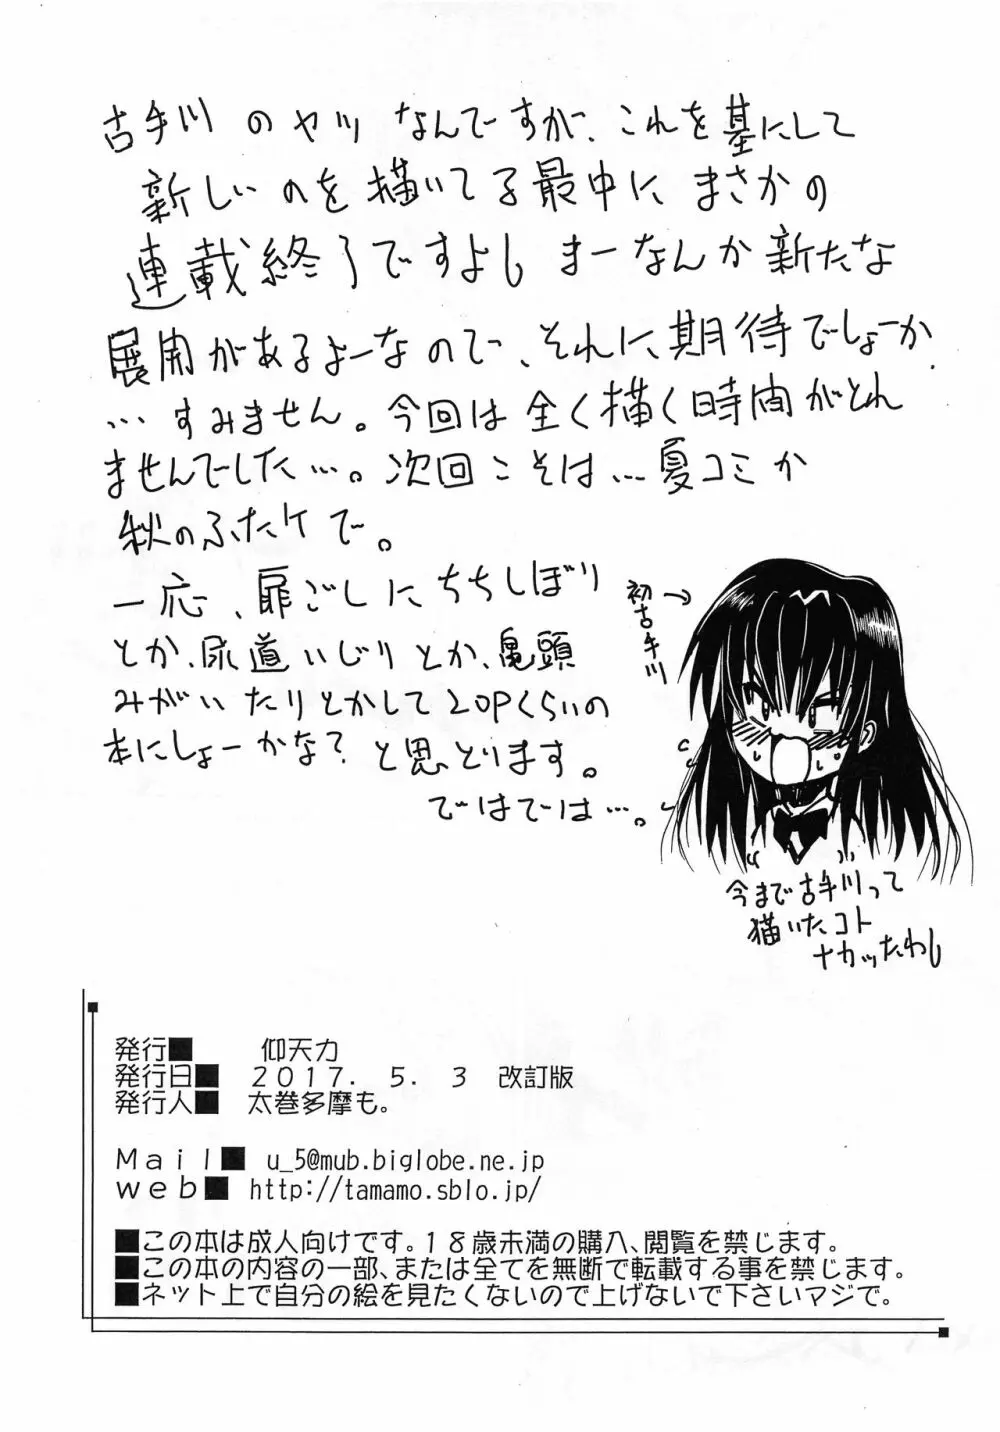 古手川のヤツなんですが、これを基にして
新しいのを描いてる最中にまさかの
連載終了ですよし まーなんか新たな
展開があるよーなので、それに期待でしょーか
…すみません。今回は全く描く時間がとれ
ませんでした…。次回こそは…夏コミか
秋のふたケで。
一応、扉ごしにちちしぼり
とか、尿道いじりとか、亀頭
みがいたりとかして20Pくらいの
本にしょーかな?と思とります。
ではでは…。
初古手川→
今まで古手川って
描いたコト
ナカッたわし
発行■ 仰天力
発行日■ 2017. 5. 3 改訂版
発行人■ 太巻多摩も。
Mail■ u_5@mub.biglobe.ne.jp
web■ http://tamamo.sblo.jp/
■この本は成人向けです。18歳未満の購入、閲覧を禁じます。
■この本の内容の一部、または全てを無断で転載する事を禁じます。
■ネット上で自分の絵を見たくないので上げないで下さいマジで。